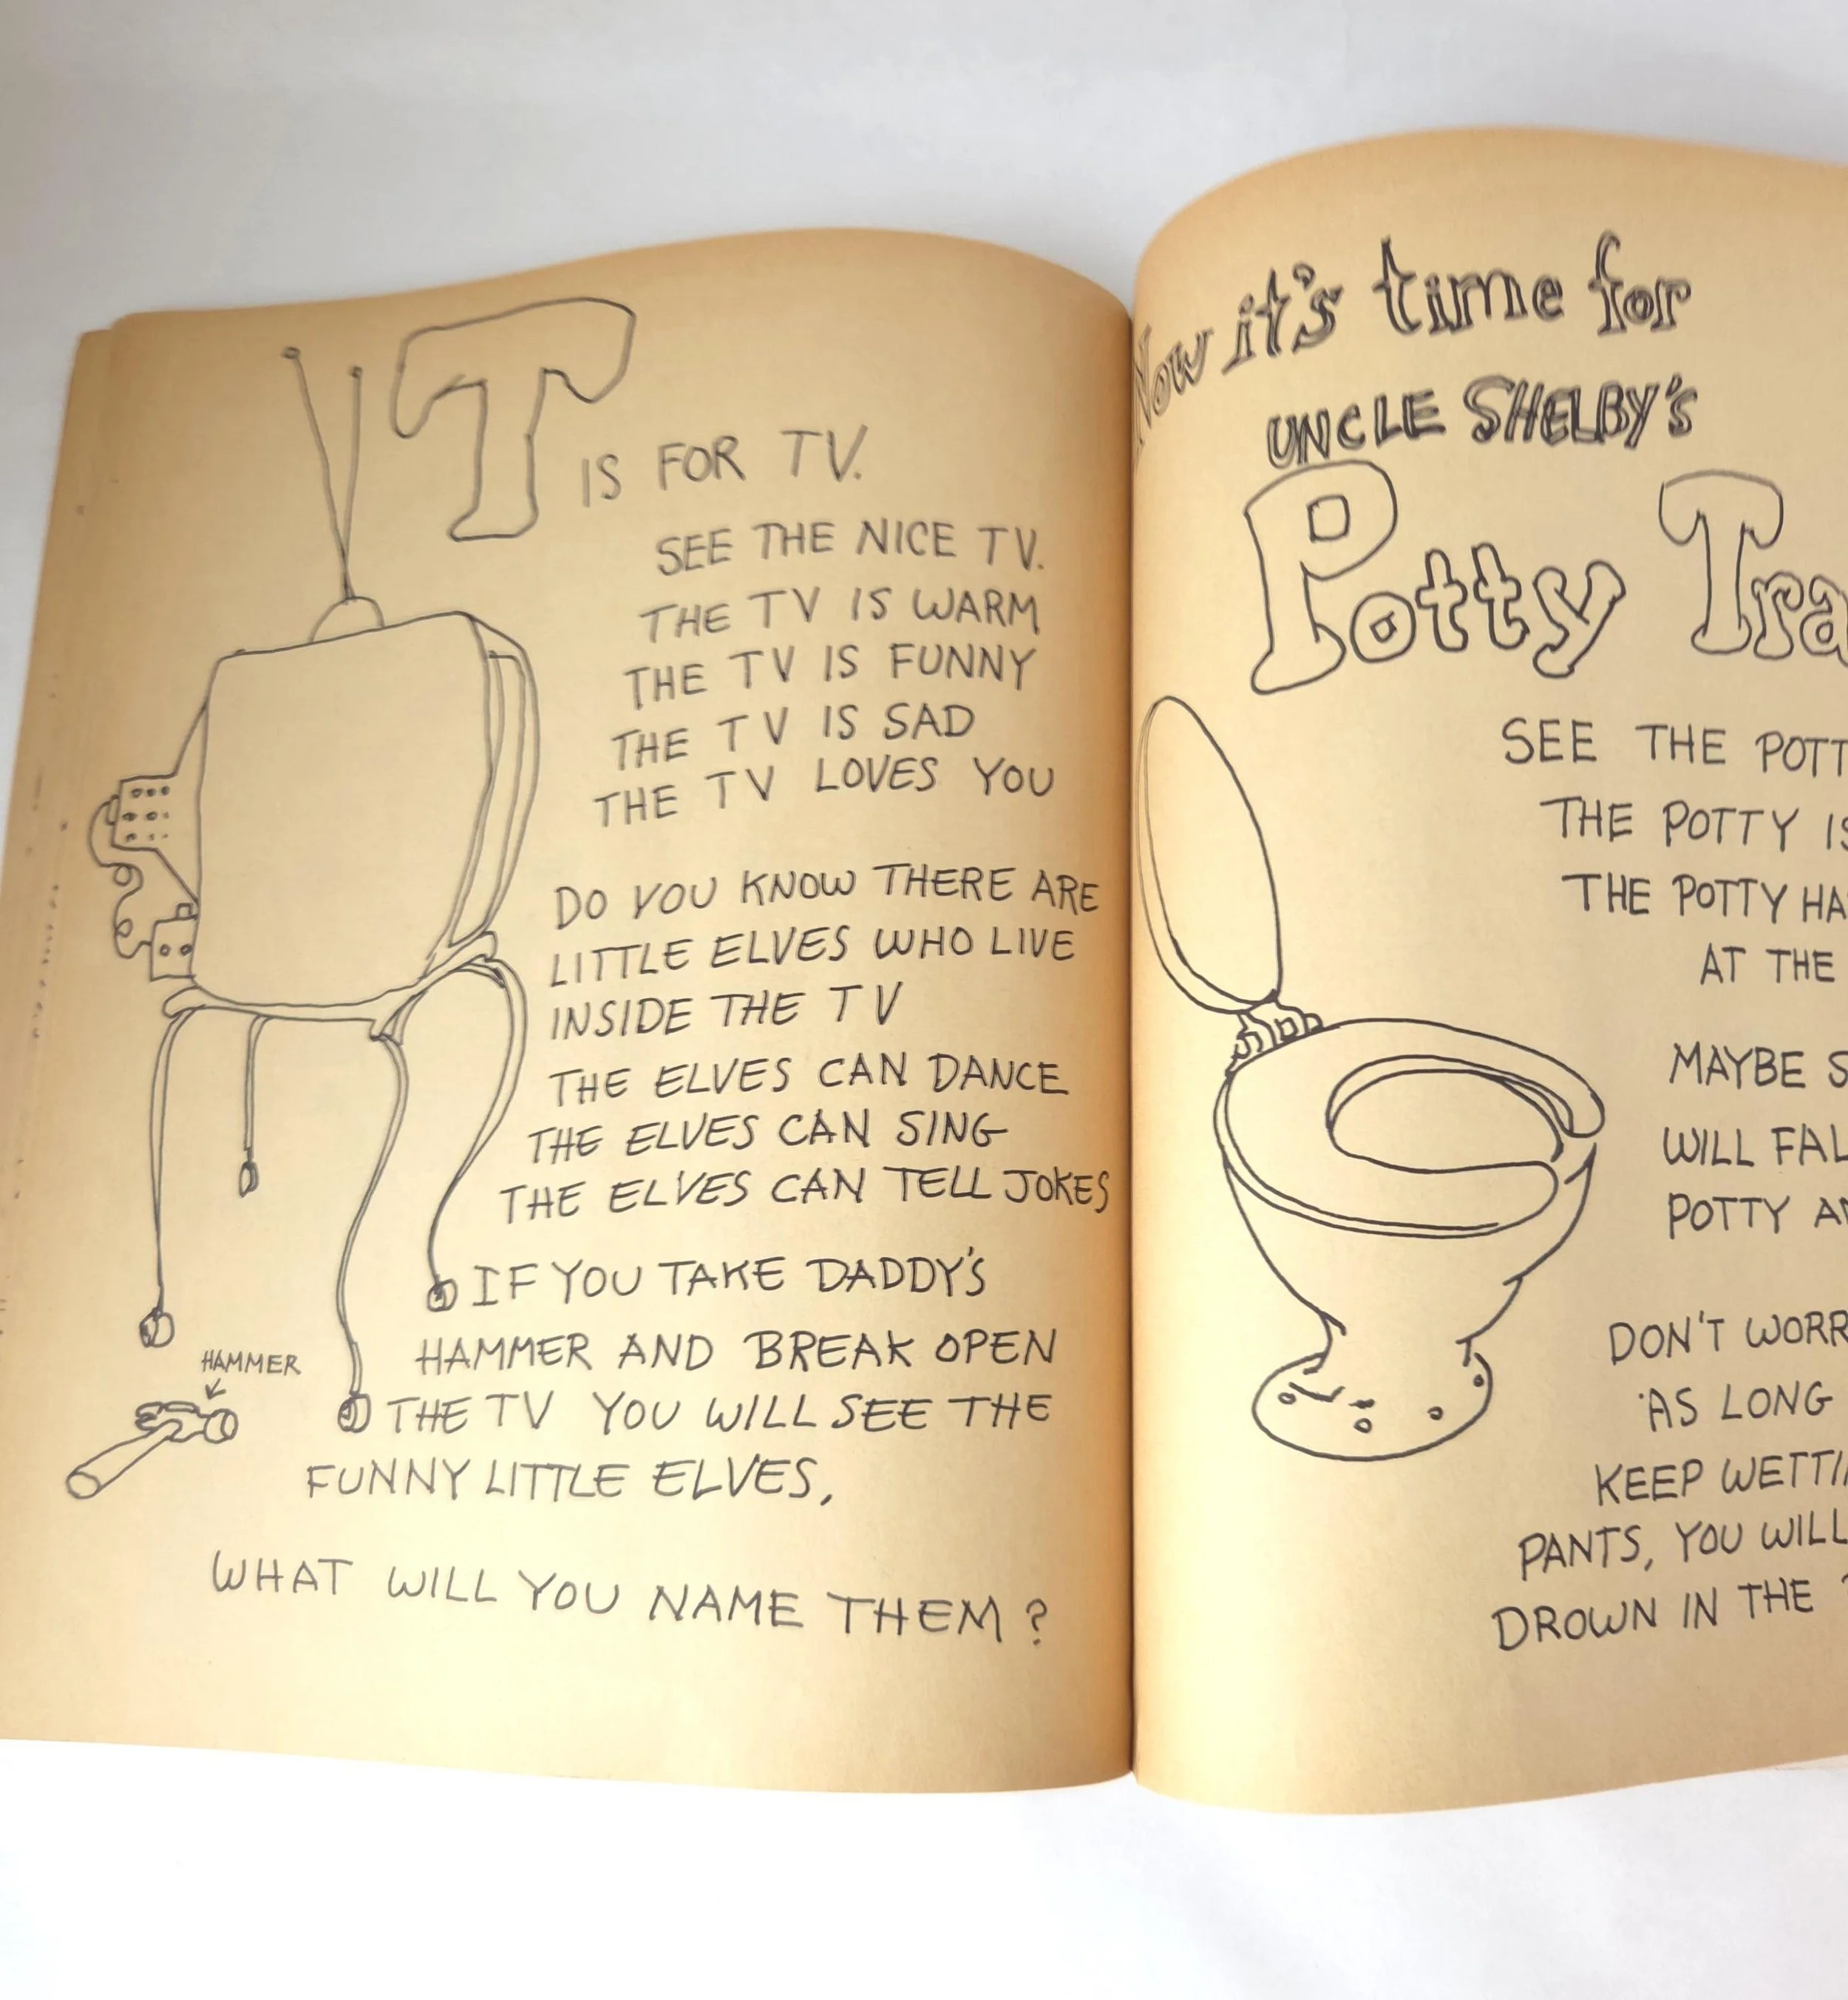 T IS FOR TV.
SEE THE NICE TV.
THE TV IS WARM
THE TV IS FUNNY
THE TV IS SAD
THE TV LOVES YOU
DO YOU KNOW THERE ARE
LITTLE ELVES WHO LIVE
INSIDE THE TV
THE ELVES CAN DANCE
THE ELVES CAN SING
THE ELVES CAN TELL JOKES
IF YOU TAKE DADDY'S
HAMMER AND BREAK OPEN
THE TV YOU WILL SEE THE
FUNNY LITTLE ELVES,
WHAT WILL YOU NAME THEM?
HAMMER
Now it's time for
UNCLE SHELBY'S
Potty Tra
SEE THE POTT
THE POTTY IS
THE POTTY HA
AT THE
MAYBE S
WILL FAL
POTTY AN
DON'T WORR
AS LONG
KEEP WETTI
PANTS, YOU WILL
DROWN IN THE